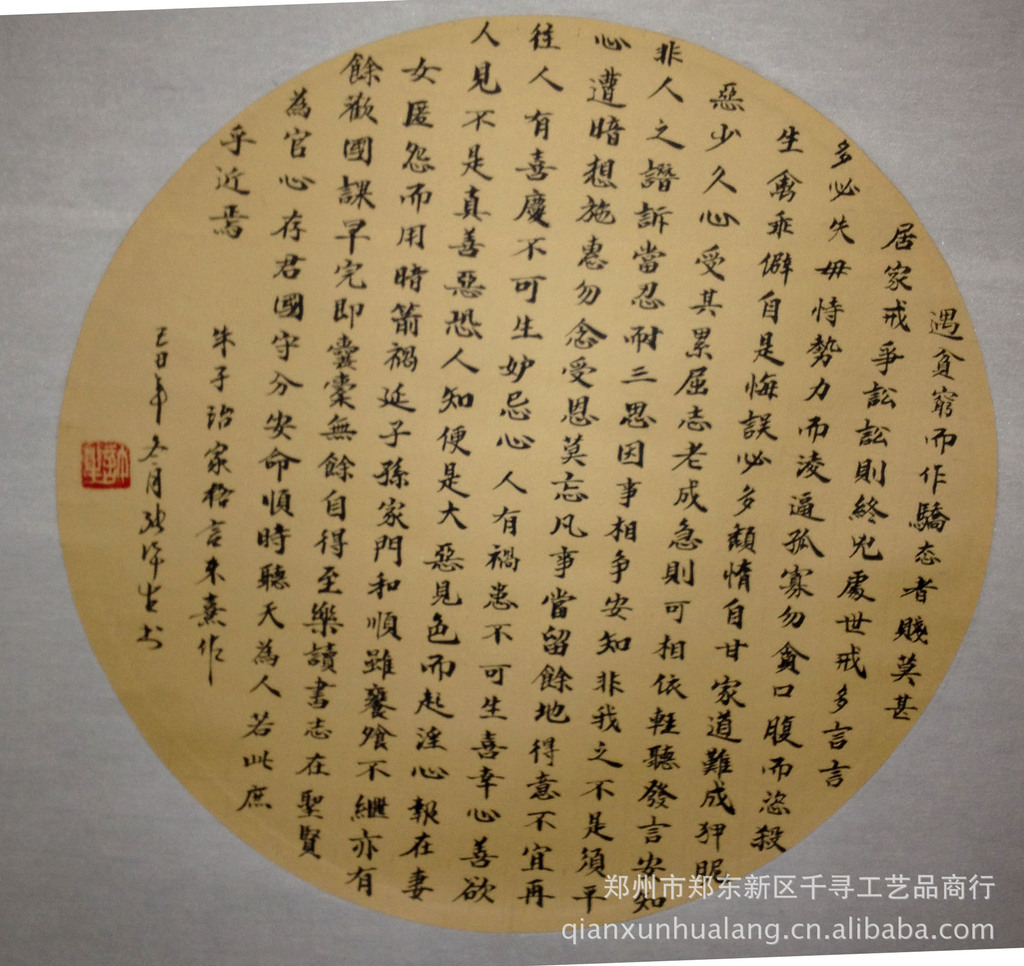 遇貧窮而作驕态者賤莫甚
居家戒爭訟訟則終凶處世戒多言言
多必失毋恃勢力而淩逼孤寡勿貪口腹而恣殺
生禽乖僻自是悔誤必多頹惰自甘家道難成狎昵
惡少久心受其累屈志老成急則可相依輕聽發言安知
非人之譖訴當忍耐三思因事相争安知非我之不是須平
心遭暗想施惠勿念受恩莫忘凡事當留餘地得意不宜再
往人有喜慶不可生妒忌心人有禍患不可生喜幸心善欲
人見不是真善惡恐人知便是大惡見色而起淫心報在妻
女匿怨而用暗箭禍延子孫家門和順雖饔飧不繼亦有
餘歡國課早完即囊橐無餘自得至樂讀書志在聖賢
為官心存君國守分安命順時聽天為人若此庶
乎近焉
朱子治家格言朱熹作
年月书
郑州市郑东新区千寻工艺品商行
qianxunhualang.cn.alibaba.com